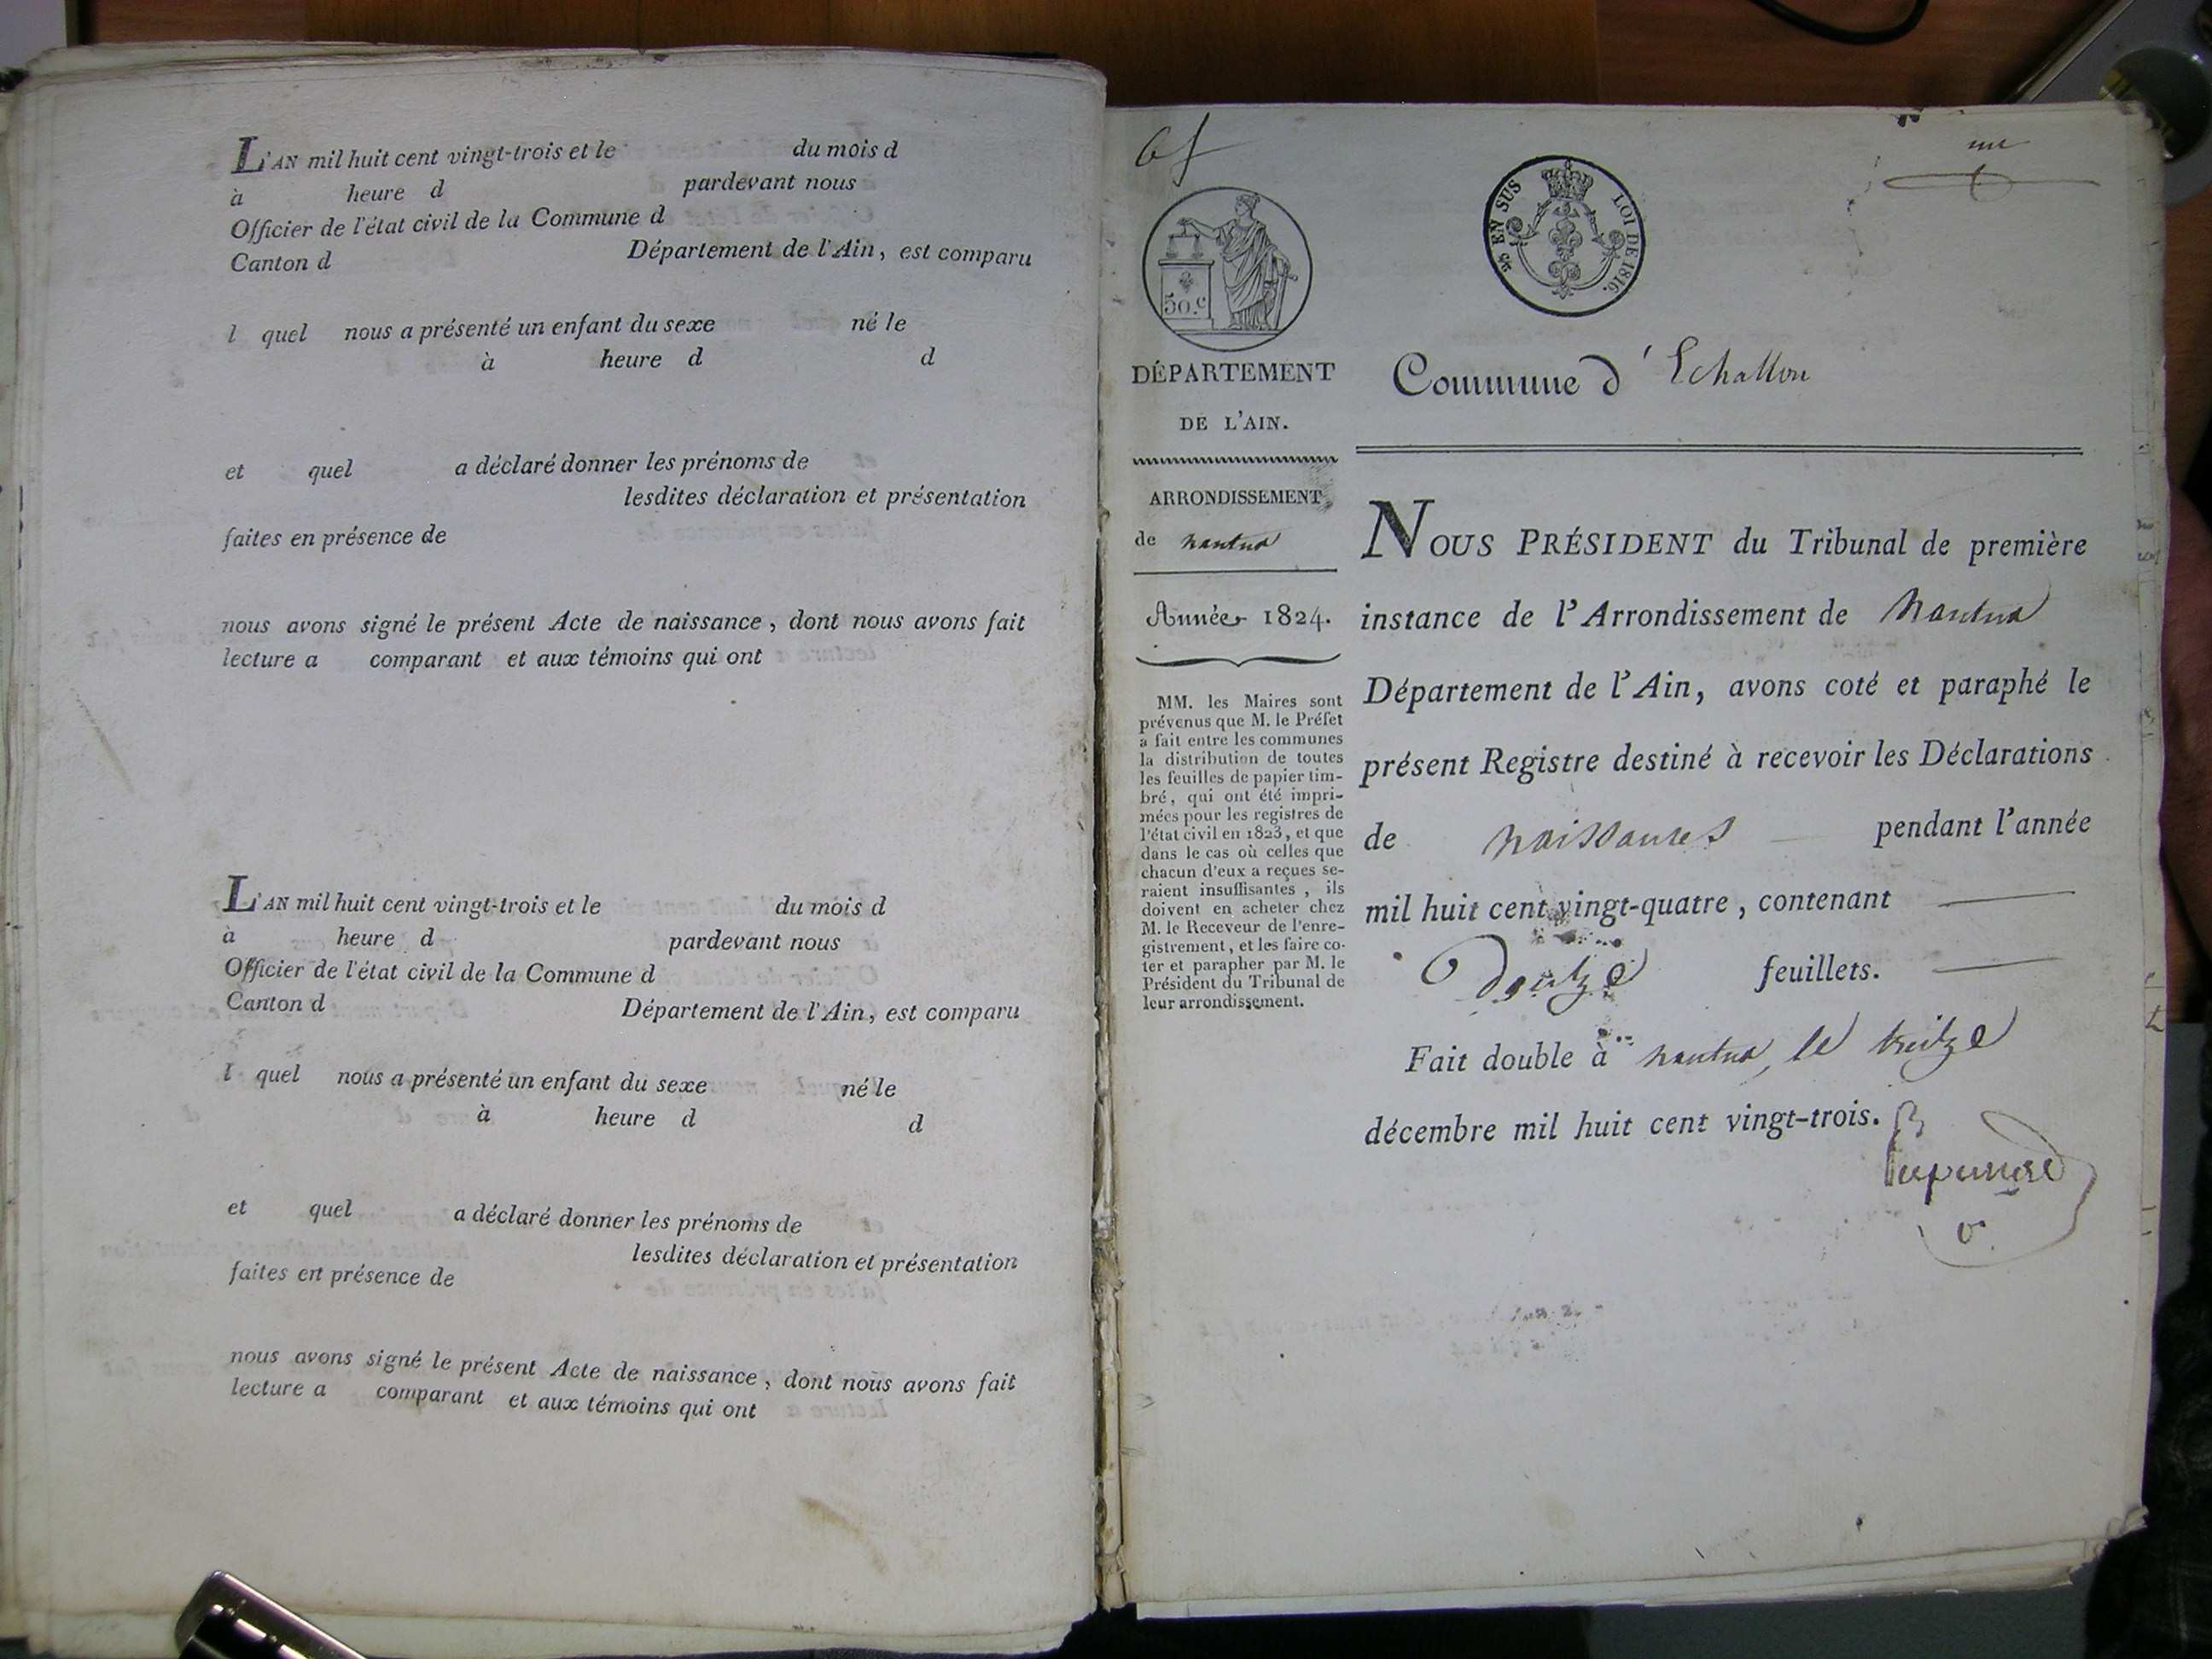 L'AN mil huit cent vingt-trois et le du mois d
à heure d pardevant nous
Officier de l'état civil de la Commune d
Canton d Département de l'Ain, est comparu
l quel nous a présenté un enfant du sexe né le
à heure d d
et quel a déclaré donner les prénoms de
lesdites déclaration et présentation
faites en présence de
nous avons signé le présent Acte de naissance, dont nous avons fait
lecture a comparant et aux témoins qui ont
L'AN mil huit cent vingt-trois et le du mois d
à heure d pardevant nous
Officier de l'état civil de la Commune d
Canton d Département de l'Ain, est comparu
l quel nous a présenté un enfant du sexe né le
à heure d d
et quel a déclaré donner les prénoms de
lesdites déclaration et présentation
faites en présence de
nous avons signé le présent Acte de naissance, dont nous avons fait
lecture a comparant et aux témoins qui ont
50.c
EN SUS LOI DE 1816.
DÉPARTEMENT
DE L'AIN.
ARRONDISSEMENT
de nantua
Année 1824.
MM. les Maires sont
prévenus que M. le Préfet
a fait entre les communes
la distribution de toutes
les feuilles de papier tim-
bré, qui ont été impri-
mées pour les registres de
l'état civil en 1823, et que
dans le cas où celles que
chacun d'eux a reçues se-
raient insuffisantes, ils
doivent en acheter chez
M. le Receveur de l'enre-
gistrement, et les faire co-
ter et parapher par M. le
Président du Tribunal de
leur arrondissement.
Commune d'Echallon
NOUS PRÉSIDENT du Tribunal de première
instance de l'Arrondissement de Nantua
Département de l'Ain, avons coté et paraphé le
présent Registre destiné à recevoir les Déclarations
de naissances pendant l'année
mil huit cent vingt-quatre, contenant
feuillets.
Fait double à nantua, le treize
décembre mil huit cent vingt-trois.